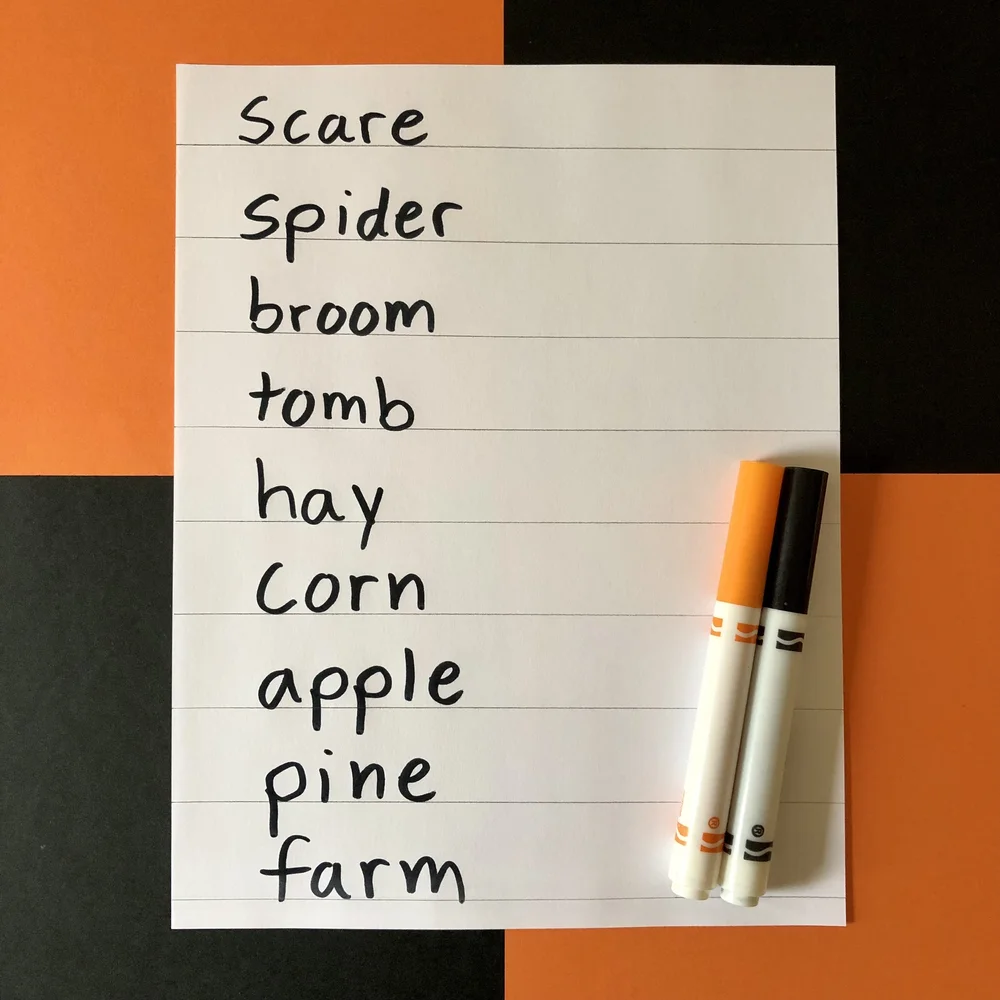 Scare
spider
broom
tomb
hay
corn
apple
pine
farm